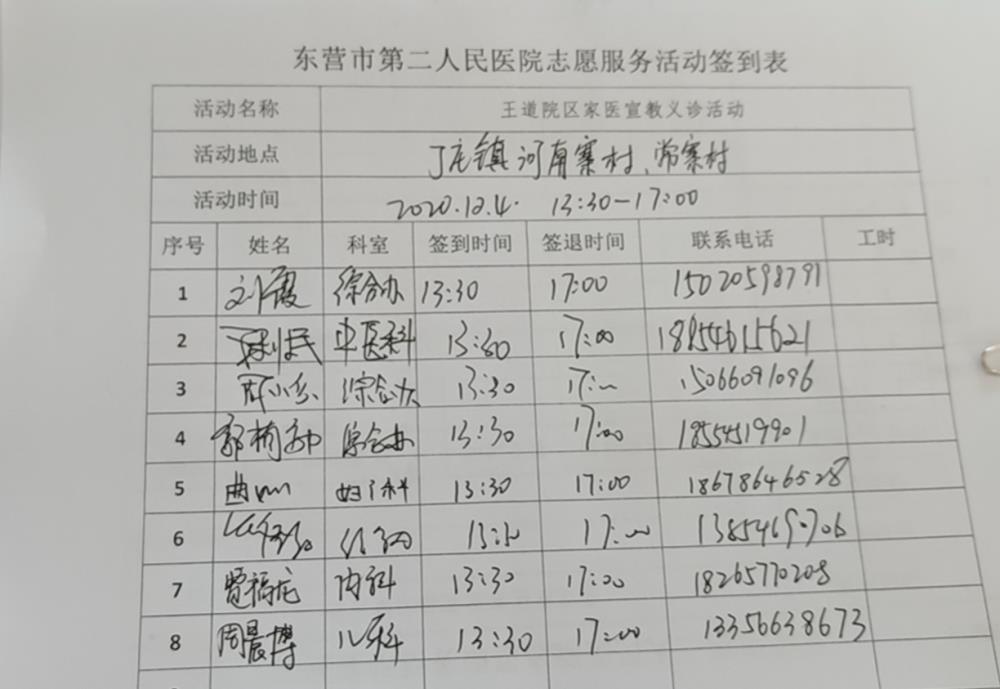 东营市第二人民医院志愿服务活动签到表
活动名称 王道院区家医宣教义诊活动
活动地点 丁庄镇河南寨村、常寨村
活动时间 2020.12.4. 13:30-17:00
序号 姓名 科室 签到时间 签退时间 联系电话 工时
1 刘霞 综合办 13:30 17:00 15020598791
2 中医科 13:30 17:00 18954615621
3 综合办 13:30 17:00 15066091096
4 郭楠 综合办 13:30 17:00 18554519901
5 曲 妇产科 13:30 17:00 18678646528
6 13:30 17:00
7 贾福龙 内科 13:30 17:00 18265770208
8 周晨博 儿科 13:30 17:00 13356638673